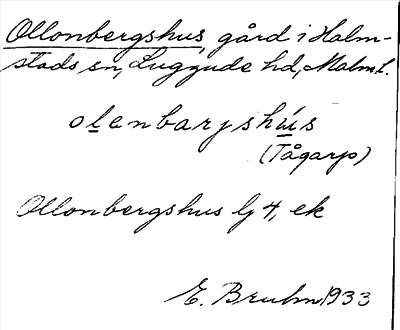 Ollonbergshus, gård i Halm-
stads sn, Luggude hd, Malm.l.
olenbarjshús
(Tågarp)
Ollonbergshus lj 4, ek
E. Bruhn 1933